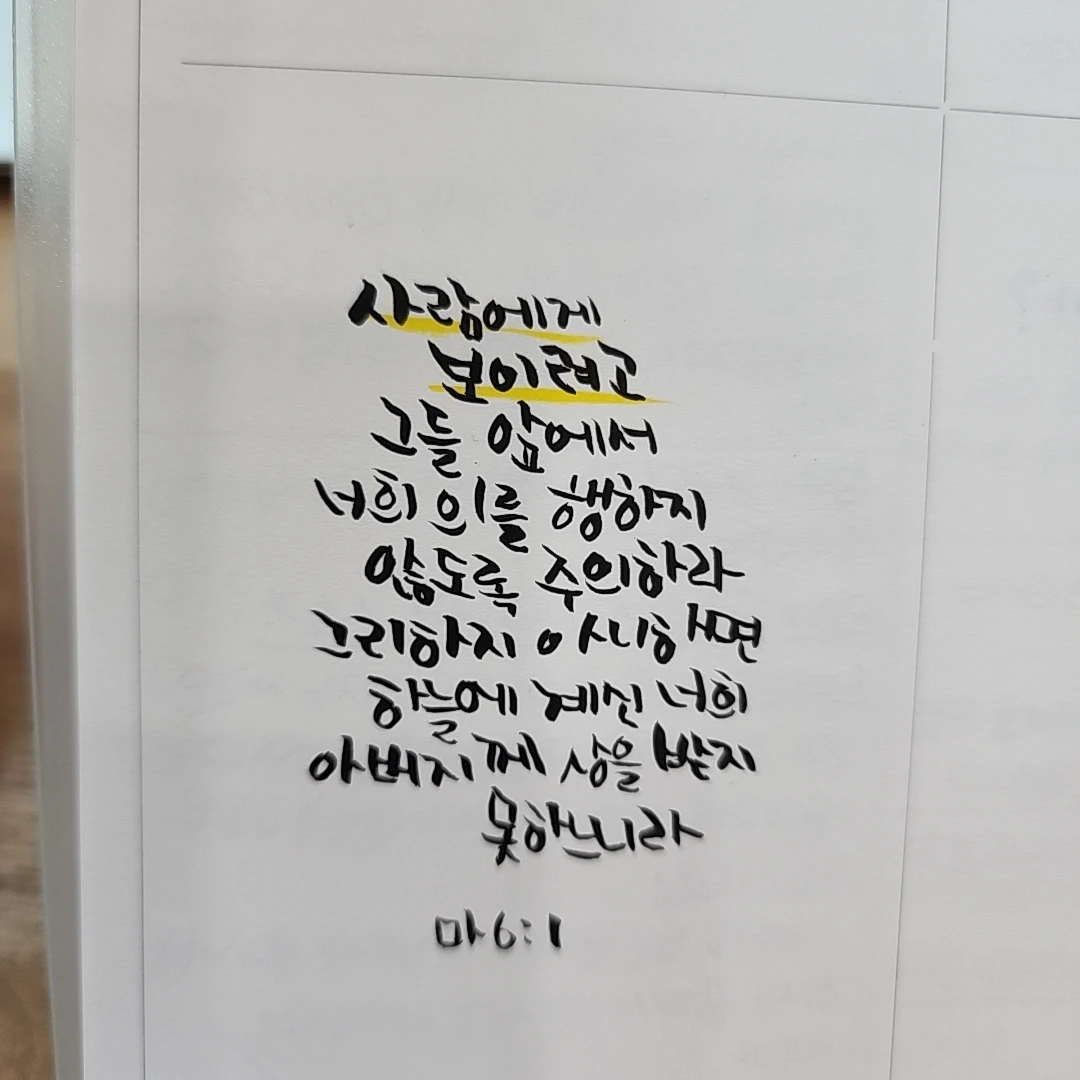 사람에게
보이려고
그들 앞에서
너희 의를 행하지
않도록 주의하라
그리하지 아니하면
하늘에 계신 너희
아버지께 상을 받지
못하느니라
마6:1